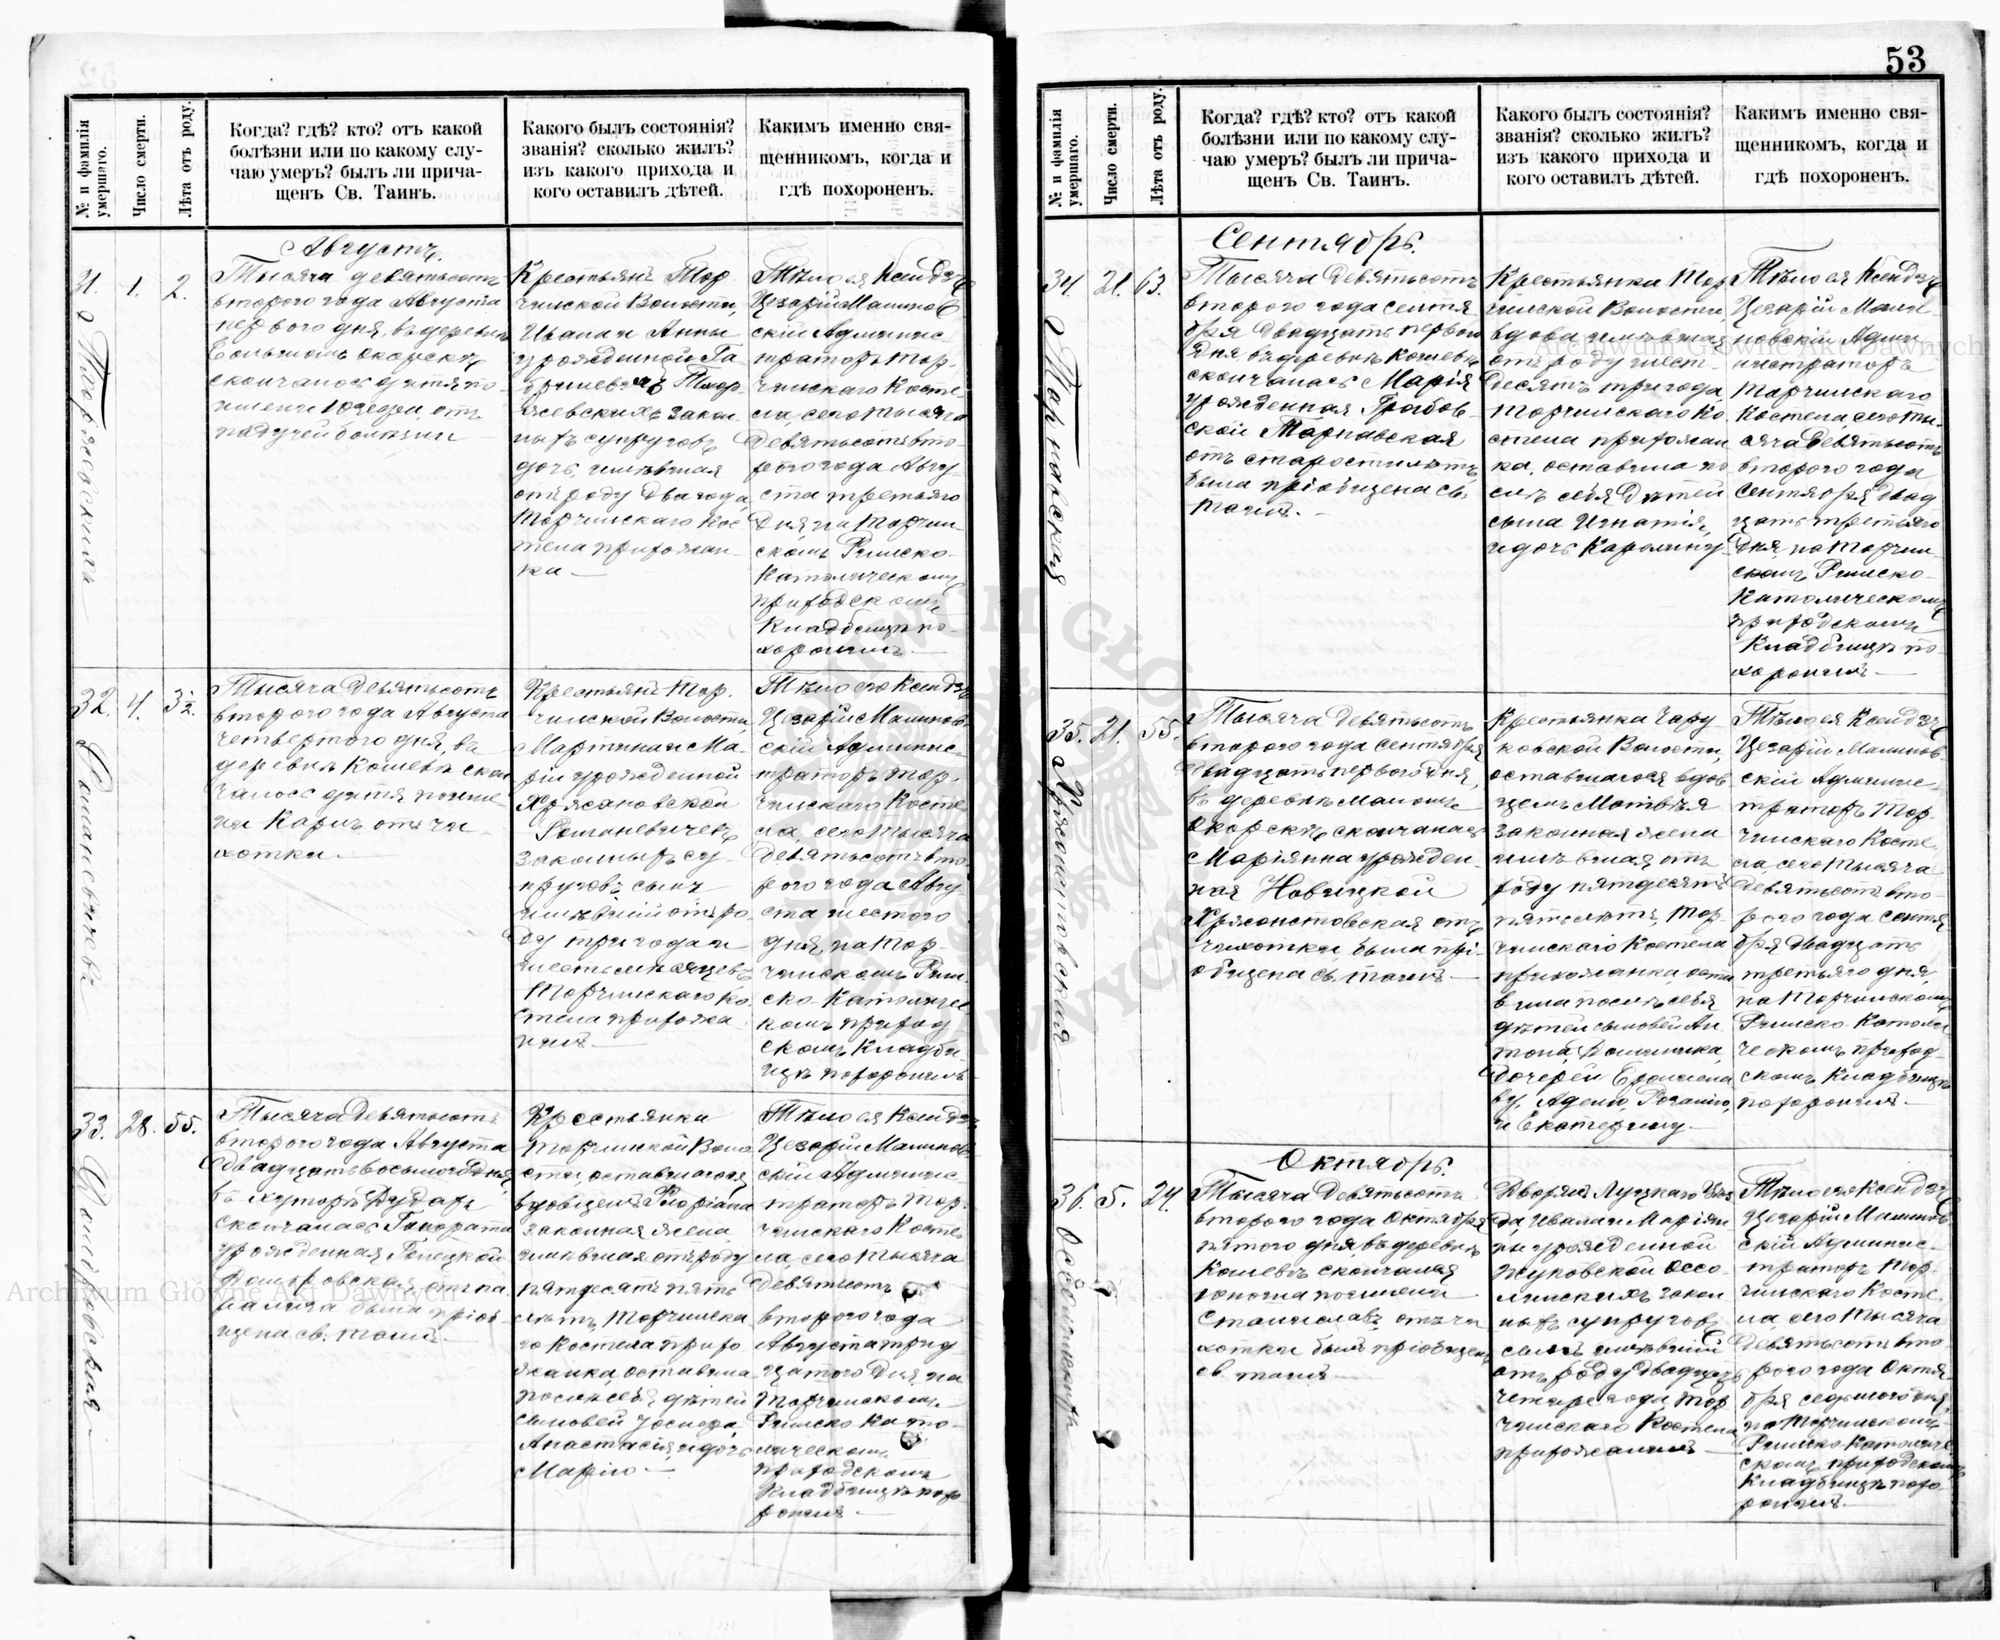 53
№ и фамилія умершаго.
Число смерти.
Лѣта отъ роду.
Когда? гдѣ? кто? отъ какой
болѣзни или по какому слу-
чаю умеръ? былъ ли прича-
щенъ Св. Таинъ.
Какого былъ состоянія?
званія? сколько жилъ?
изъ какого прихода и
кого оставилъ дѣтей.
Какимъ именно свя-
щенникомъ, когда и
гдѣ похороненъ.
Августъ.
31.
1.
2.
Тысяча девятьсотъ
второго года Августа
первого дня, въ деревнѣ
скончалось дитя по
имени отъ
падучей болѣзни
Крестьянъ Тор
чинской Волости,
Ивана и Анны
урожденной Га
закон
ныхъ супруговъ
дочь, имѣвшая
отъ роду два года,
Торчинскаго Кос
тела прихожан
ка —
Тѣло ея Ксендзъ
Цезарій Малинов
скій Админис
траторъ Тор
чинскаго Косте
ла, сего тысяча
девятьсотъ вто
рого года Авгу
ста третьяго
дня, на Торчин
скомъ Римско-
Католическомъ
приходскомъ
кладбищѣ по-
хоронилъ. —
32.
4.
3½.
Тысяча девятьсотъ
второго года Августа
четвертого дня, въ
деревнѣ Кошевѣ скон
чалось дитя по име
ни Карлъ отъ ча
хотки. —
Крестьянъ Тор.
чинской Волости,
Мартина и Ма
ріи урожденной
законныхъ су
пруговъ сынъ
имѣвшій отъ ро
ду три года и
шесть мѣсяцевъ
Торчинскаго Ко
стела прихожа
нинъ. —
Тѣло его Ксендзъ
Цезарій Малинов
скій Админис
траторъ Тор.
чинскаго Косте
ла, сего тысяча
девятьсотъ вто
рого года Авгу
ста шестого
дня, на Тор
чинскомъ Рим
ско-Католичес
комъ приход
скомъ Кладби
щѣ похоронилъ
33.
28.
55.
Тысяча девятьсотъ
второго года Августа
двадцать восьмого дня,
въ хуторѣ Рудакъ
скончалась Гонората
урожденная
отъ па
ралича была пріоб
щена св. таинъ. —
Крестьянка
Торчинской Воло
сти, оставшагося
вдовцемъ Флоріана
законная жена,
имѣвшая отъ роду
пятдесятъ пять
лѣтъ, Торчинска
го Костела прихо
жанка, оставила
послѣ себя дѣтей
сыновей
и дочь
Марію —
Тѣло ея Ксендзъ
Цезарій Малинов
скій Админис
траторъ Тор
чинскаго Косте
ла, сего тысяча
девятьсотъ
второго года
Августа трид
цатого дня, на
Торчинскомъ
Римско-Като
лическомъ
приходскомъ
Кладбищѣ похо
ронилъ. —
№ и фамилія умершаго.
Число смерти.
Лѣта отъ роду.
Когда? гдѣ? кто? отъ какой
болѣзни или по какому слу-
чаю умеръ? былъ ли прича-
щенъ Св. Таинъ.
Какого былъ состоянія?
званія? сколько жилъ?
изъ какого прихода и
кого оставилъ дѣтей.
Какимъ именно свя-
щенникомъ, когда и
гдѣ похороненъ.
Сентябрь.
34.
21.
63.
Тысяча девятьсотъ
второго года сентя
бря двадцать первого
дня въ деревнѣ Кошевѣ
скончалась Марія
урожденная Грабов
ской Тарнавская
отъ старости лѣтъ
была пріобщена св.
таинъ. —
Крестьянка Тор
чинской Волости
вдова имѣвшая
отъ роду шест
десятъ три года,
Торчинскаго Ко
стела прихожан
ка, оставила по
слѣ себя дѣтей
сына Игнатія,
и дочь Каролину
Тѣло ея Ксендзъ
Цезарій Мали
новскій Адми
нистраторъ
Торчинскаго
Костела, сего ты
сяча девятьсотъ
второго года
Сентября двад
цать третьяго
дня, на Торчин
скомъ Римско-
Католическомъ
приходскомъ
Кладбищѣ по
хоронилъ —
35.
21.
55.
Тысяча девятьсотъ
второго года Сентября
двадцать первого дня,
въ деревнѣ Маломъ
Окорскѣ, скончалась
Маріянна урожден
ная Новицкой
отъ
чахотки, была прі
общена св. таинъ —
Крестьянка Чару
ковской Волости,
оставшагося вдов
цемъ Матвѣя
законная жена
имѣвшая отъ
роду пятдесятъ
пять лѣтъ, Тор
чинскаго Костела
прихожанка, оста
вила послѣ себя
дѣтей сыновей Ан
тона, Доминика,
дочерей
Аделю,
и Екатерину —
Тѣло ея Ксендзъ
Цезарій Малинов
скій Админис
траторъ Тор
чинскаго Косте
ла, сего тысяча
девятьсотъ вто
рого года Сентя
бря двадцать
третьяго дня,
на Торчинскомъ
Римско-Католи
ческомъ приход
скомъ Кладбищѣ
похоронилъ. —
Октябрь.
36.
5.
24.
Тысяча девятьсотъ
второго года Октября
пятого дня, въ деревнѣ
Кошевѣ скончался
юноша по имени
Станиславъ отъ ча
хотки былъ пріобщенъ
св. таинъ —
Дворянъ Луцкаго Уѣз
да, Ивана и Маріян
ны урожденной
Жуковской Оссо
линскихъ закон
ныхъ супруговъ
сынъ имѣвшій
отъ роду двадцать
четыре года, Тор
чинскаго Костела
прихожанинъ —
Тѣло его Ксендзъ
Цезарій Малинов
скій Админис
траторъ Тор
чинскаго Косте
ла сего тысяча
девятьсотъ вто
рого года Октя
бря седьмого дня,
на Торчинскомъ
Римско-Католиче
скомъ приходскомъ
Кладбищѣ похо
ронилъ —
Archiwum Główne Akt Dawnych